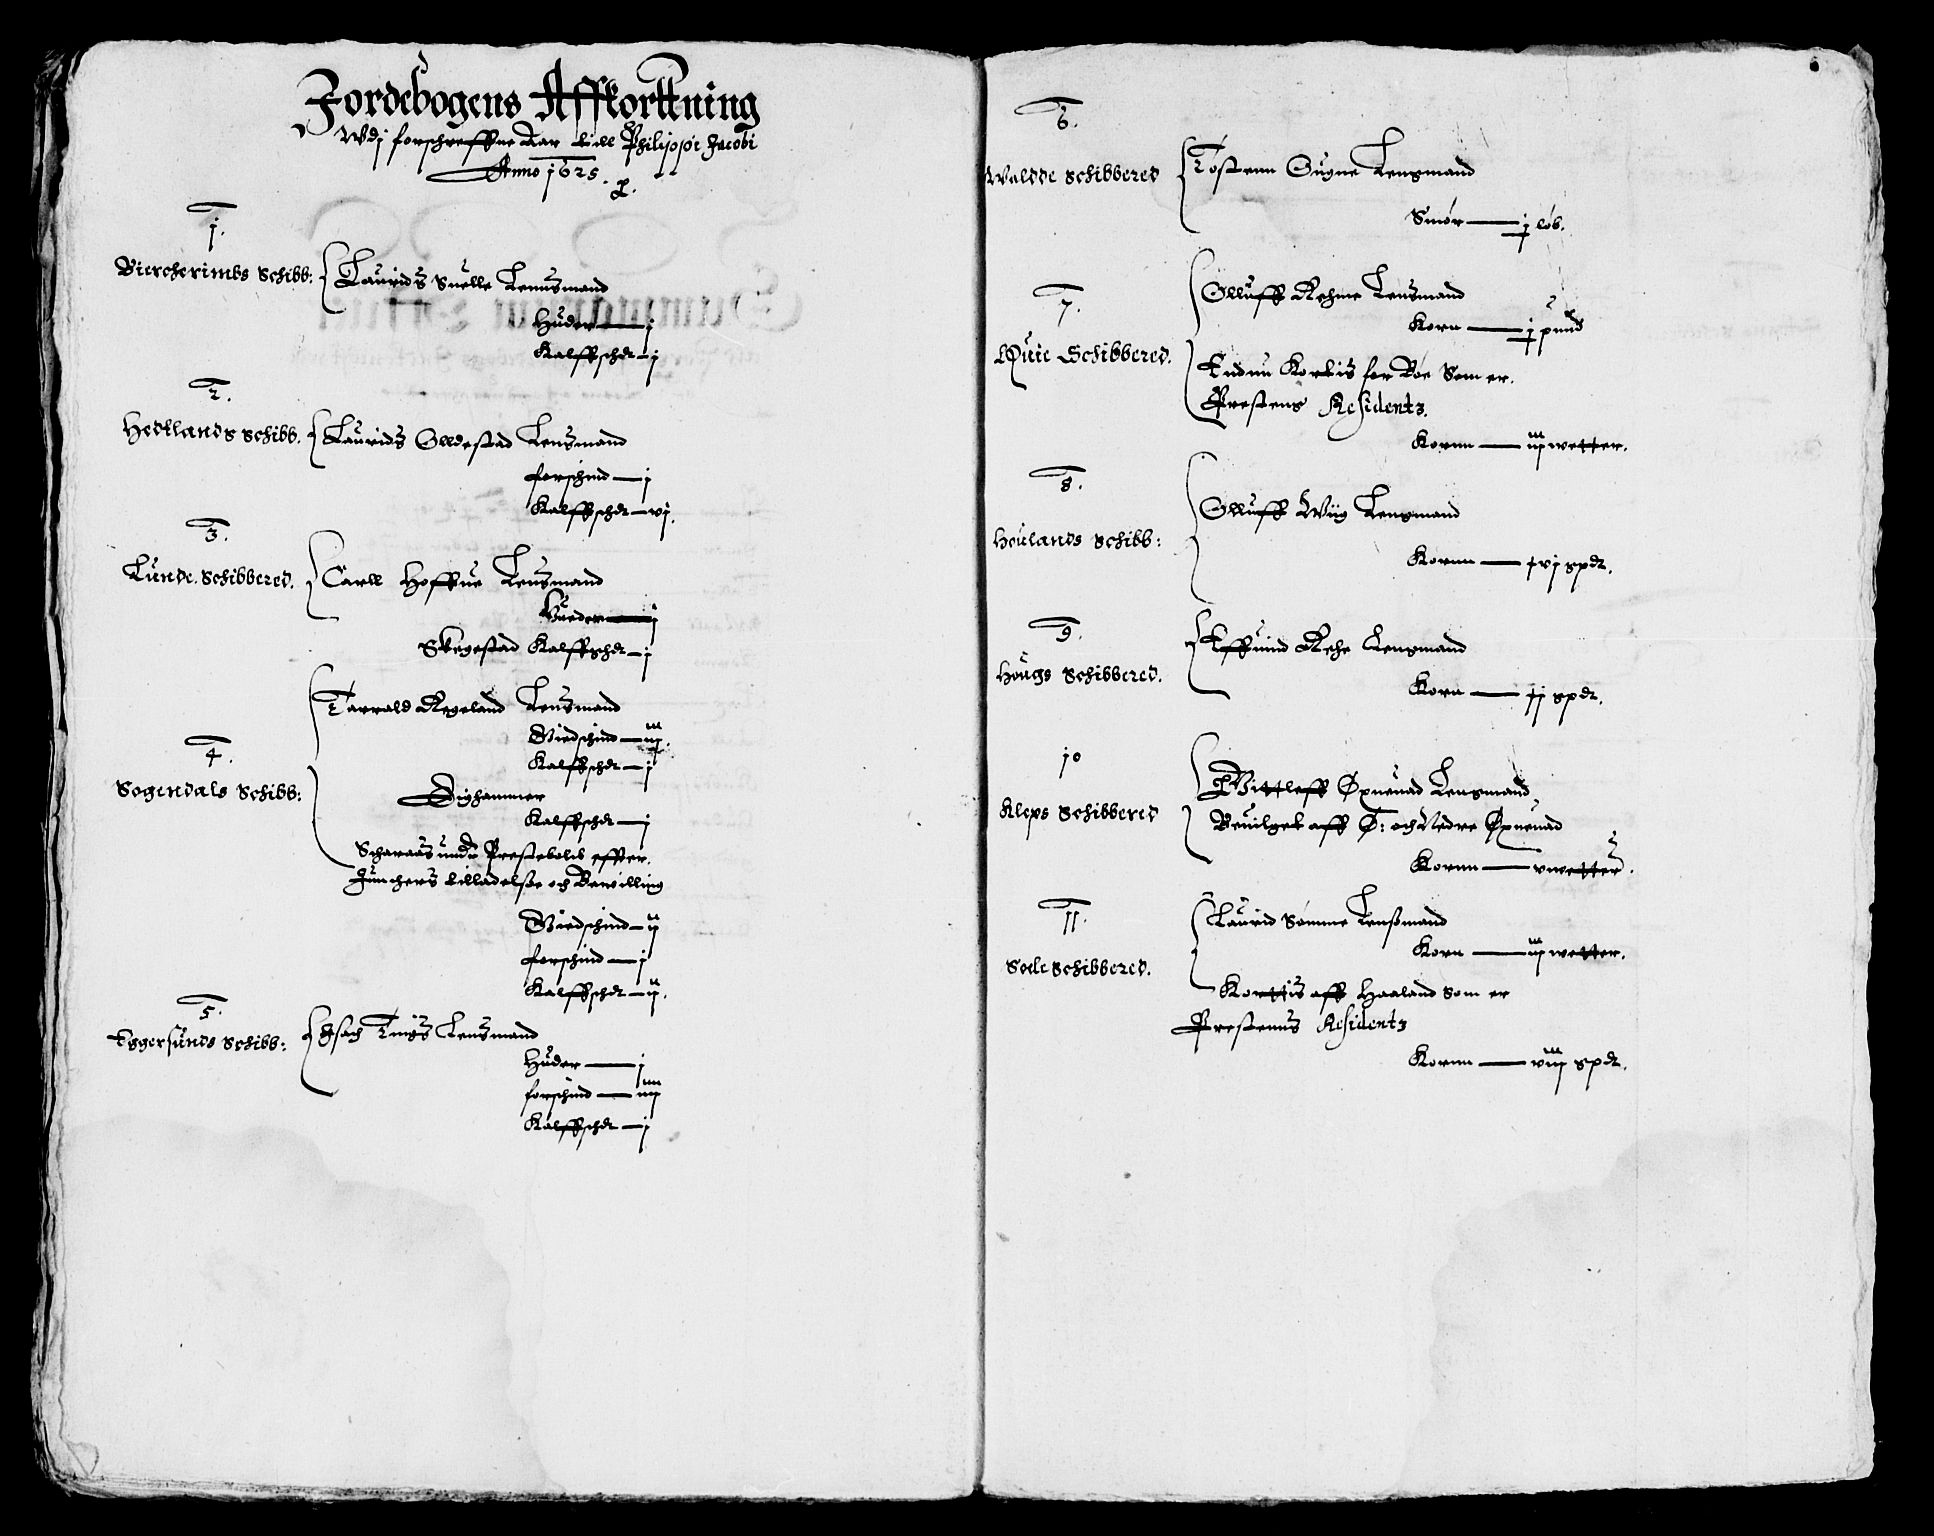 Jordebogens Affkorttning
Wdj forschreffne Aar till Philippi Jacobi
Anno 1625.
1.
Biercherimbs Schibb:
Laurids Suelle Lennsmand
Huder — j
Kalffschdt — j
2.
Hedllands schibb.
Laurids Olldestad Lensmand
forschind — j
Kalffschdt — vj.
3.
Lunde. Schibbered.
Carll Hoffue Lensmand
Hueder — j
Skegestad Kalffschdt — j
4.
Sogendals Schibb:
Tarrald Regeland Lensmand
Giedschind — iij.
Kalffschdt — j
Dighammer
Kalffschdt — j
Scharaas und Prestebolid effter.
Junchers tilladelsse och Bewilling
Giedschind — ij
forschind — j
Kalffschdt — ij.
5.
Eggersunds Schibb:
Esach Tings Lensmand
Huder — j
forschind — iiij
Kalffschdt — j
6.
Waldde schibbered
Tostenn Gugne Lensmand
Smør — j løb.
7.
Quie Schibbered.
Olluff Rehme Lensmand
Korn — j pund
Endnu Kortis for Boe Som er.
Prestens Residentz.
Kornn — iij wetter.
8.
Houlands schibb:
Olluff Wiig Lensmand
Kornn — xvj spdt.
9.
Hougs Schibbered.
Effuind Rehe Lensmand
Korn — xj spdt.
10
Kleps Schibbered
Wittleff Øxneuad Lensmand
Beuilget aff Ø: och Nedre Øxneuad
Kornn — v wetter.
11.
Sole schibbered.
Laurid Sømme Lenssmand
Korn — iij wetter.
Korttis aff Haaland som er
Prestenns Residentz
Kornn — viij spdt.